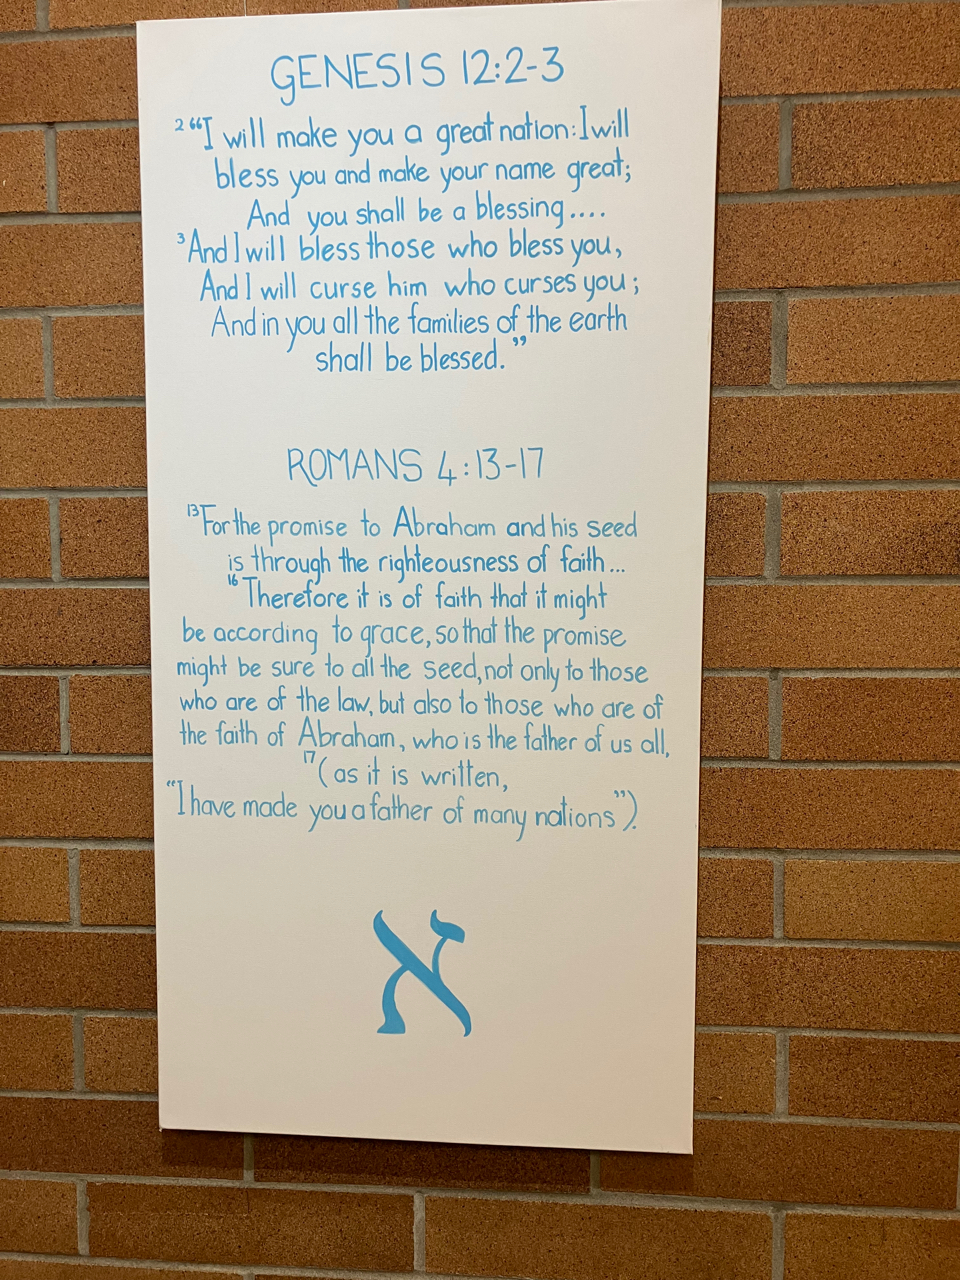 GENESIS 12:2-3
2 “I will make you a great nation: I will
bless you and make your name great;
And you shall be a blessing....
3 And I will bless those who bless you,
And I will curse him who curses you;
And in you all the families of the earth
shall be blessed.”
ROMANS 4:13-17
13 For the promise to Abraham and his seed
is through the righteousness of faith...
16 Therefore it is of faith that it might
be according to grace, so that the promise
might be sure to all the seed, not only to those
who are of the law, but also to those who are of
the faith of Abraham, who is the father of us all,
17 (as it is written,
“I have made you a father of many nations”).
א